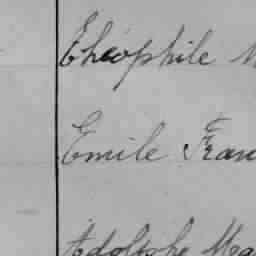 Théophile
Emile Fran
Adolphe Ma